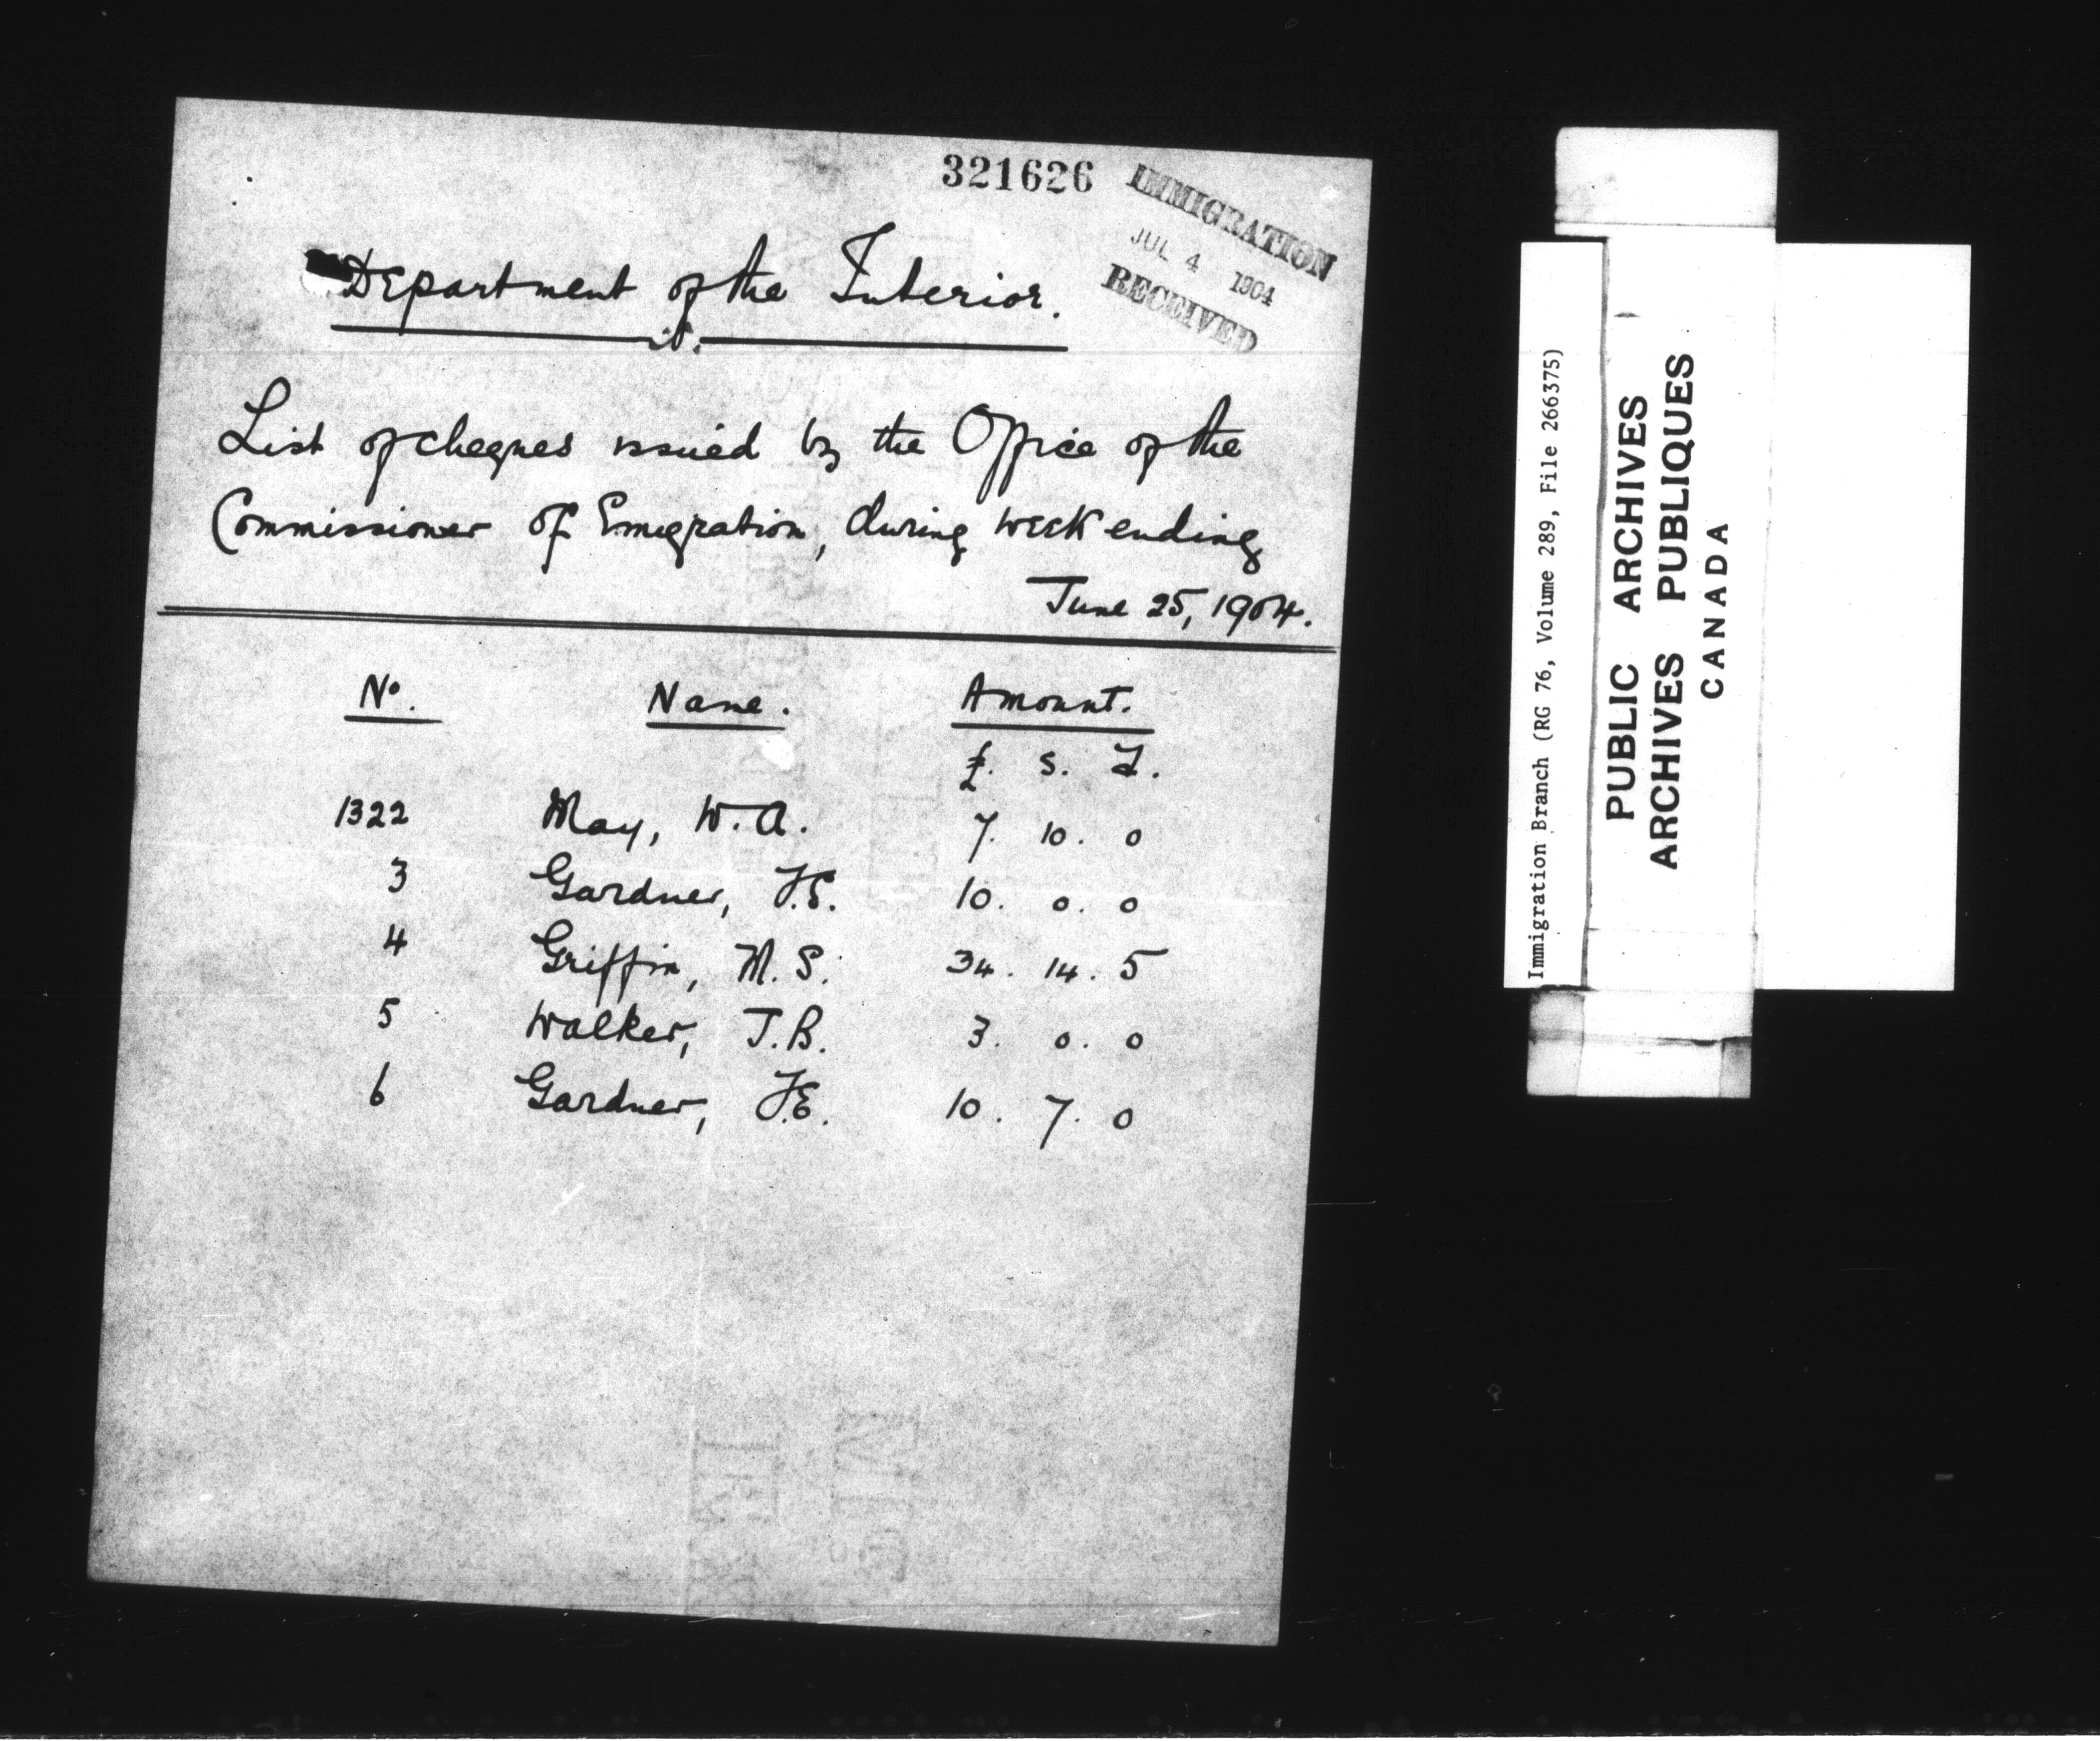 321626
IMMIGRATION
JUL 4 1904
RECEIVED
Department of the Interior.
List of cheques issued by the Office of the
Commissioner of Emigration, during week ending
June 25, 1904.
No. Name. Amount.
£. s. d.
1322 May, W. A. 7. 10. 0
3 Gardner, F.E. 10. 0. 0
4 Griffin, M. S. 34. 14. 5
5 Walker, J.B. 3. 0. 0
6 Gardner, F.E. 10. 7. 0
Immigration Branch (RG 76, Volume 289, File 266375)
PUBLIC ARCHIVES
ARCHIVES PUBLIQUES
CANADA